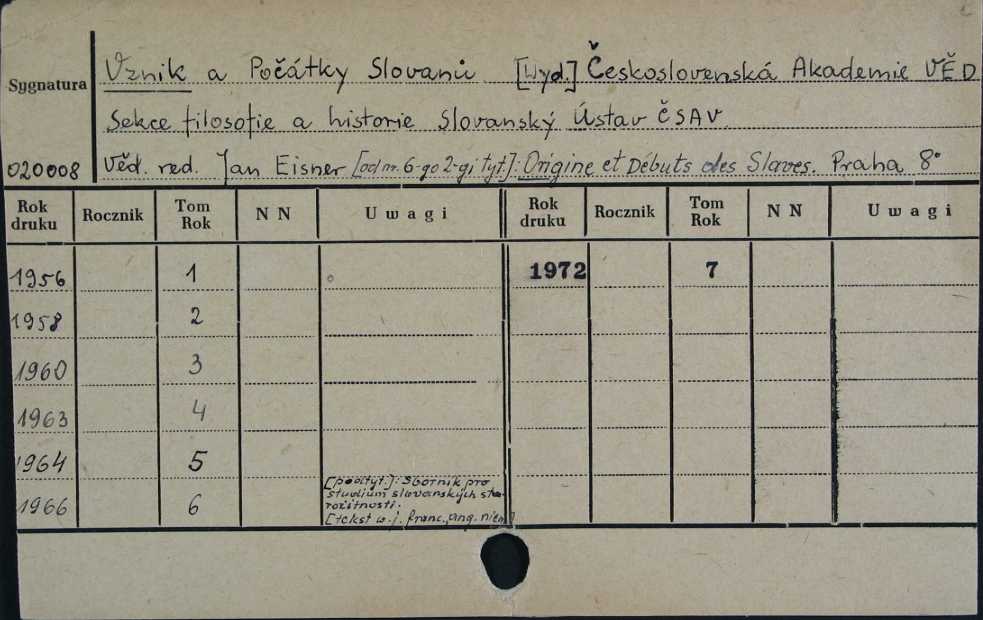 Vznik a Počátky Slovanů [Wyd.] Československá Akademie VĚD
Sygnatura
Sekce filosofie a historie Slovanský Ústav ČSAV
020008 Věd. red. Jan Eisner [od nr. 6-go 2-gi tyt.]: Origine et Débuts des Slaves. Praha 8°
Rok druku Rocznik Tom Rok NN Uwagi Rok druku Rocznik Tom Rok NN Uwagi
1956 1 1972 7
1958 2
1960 3
1963 4
1964 5
1966 6
[podtyt.]: Sborník pro
studium slovanských sta-
rožitností.
[tekst w j. franc., ang. niem]